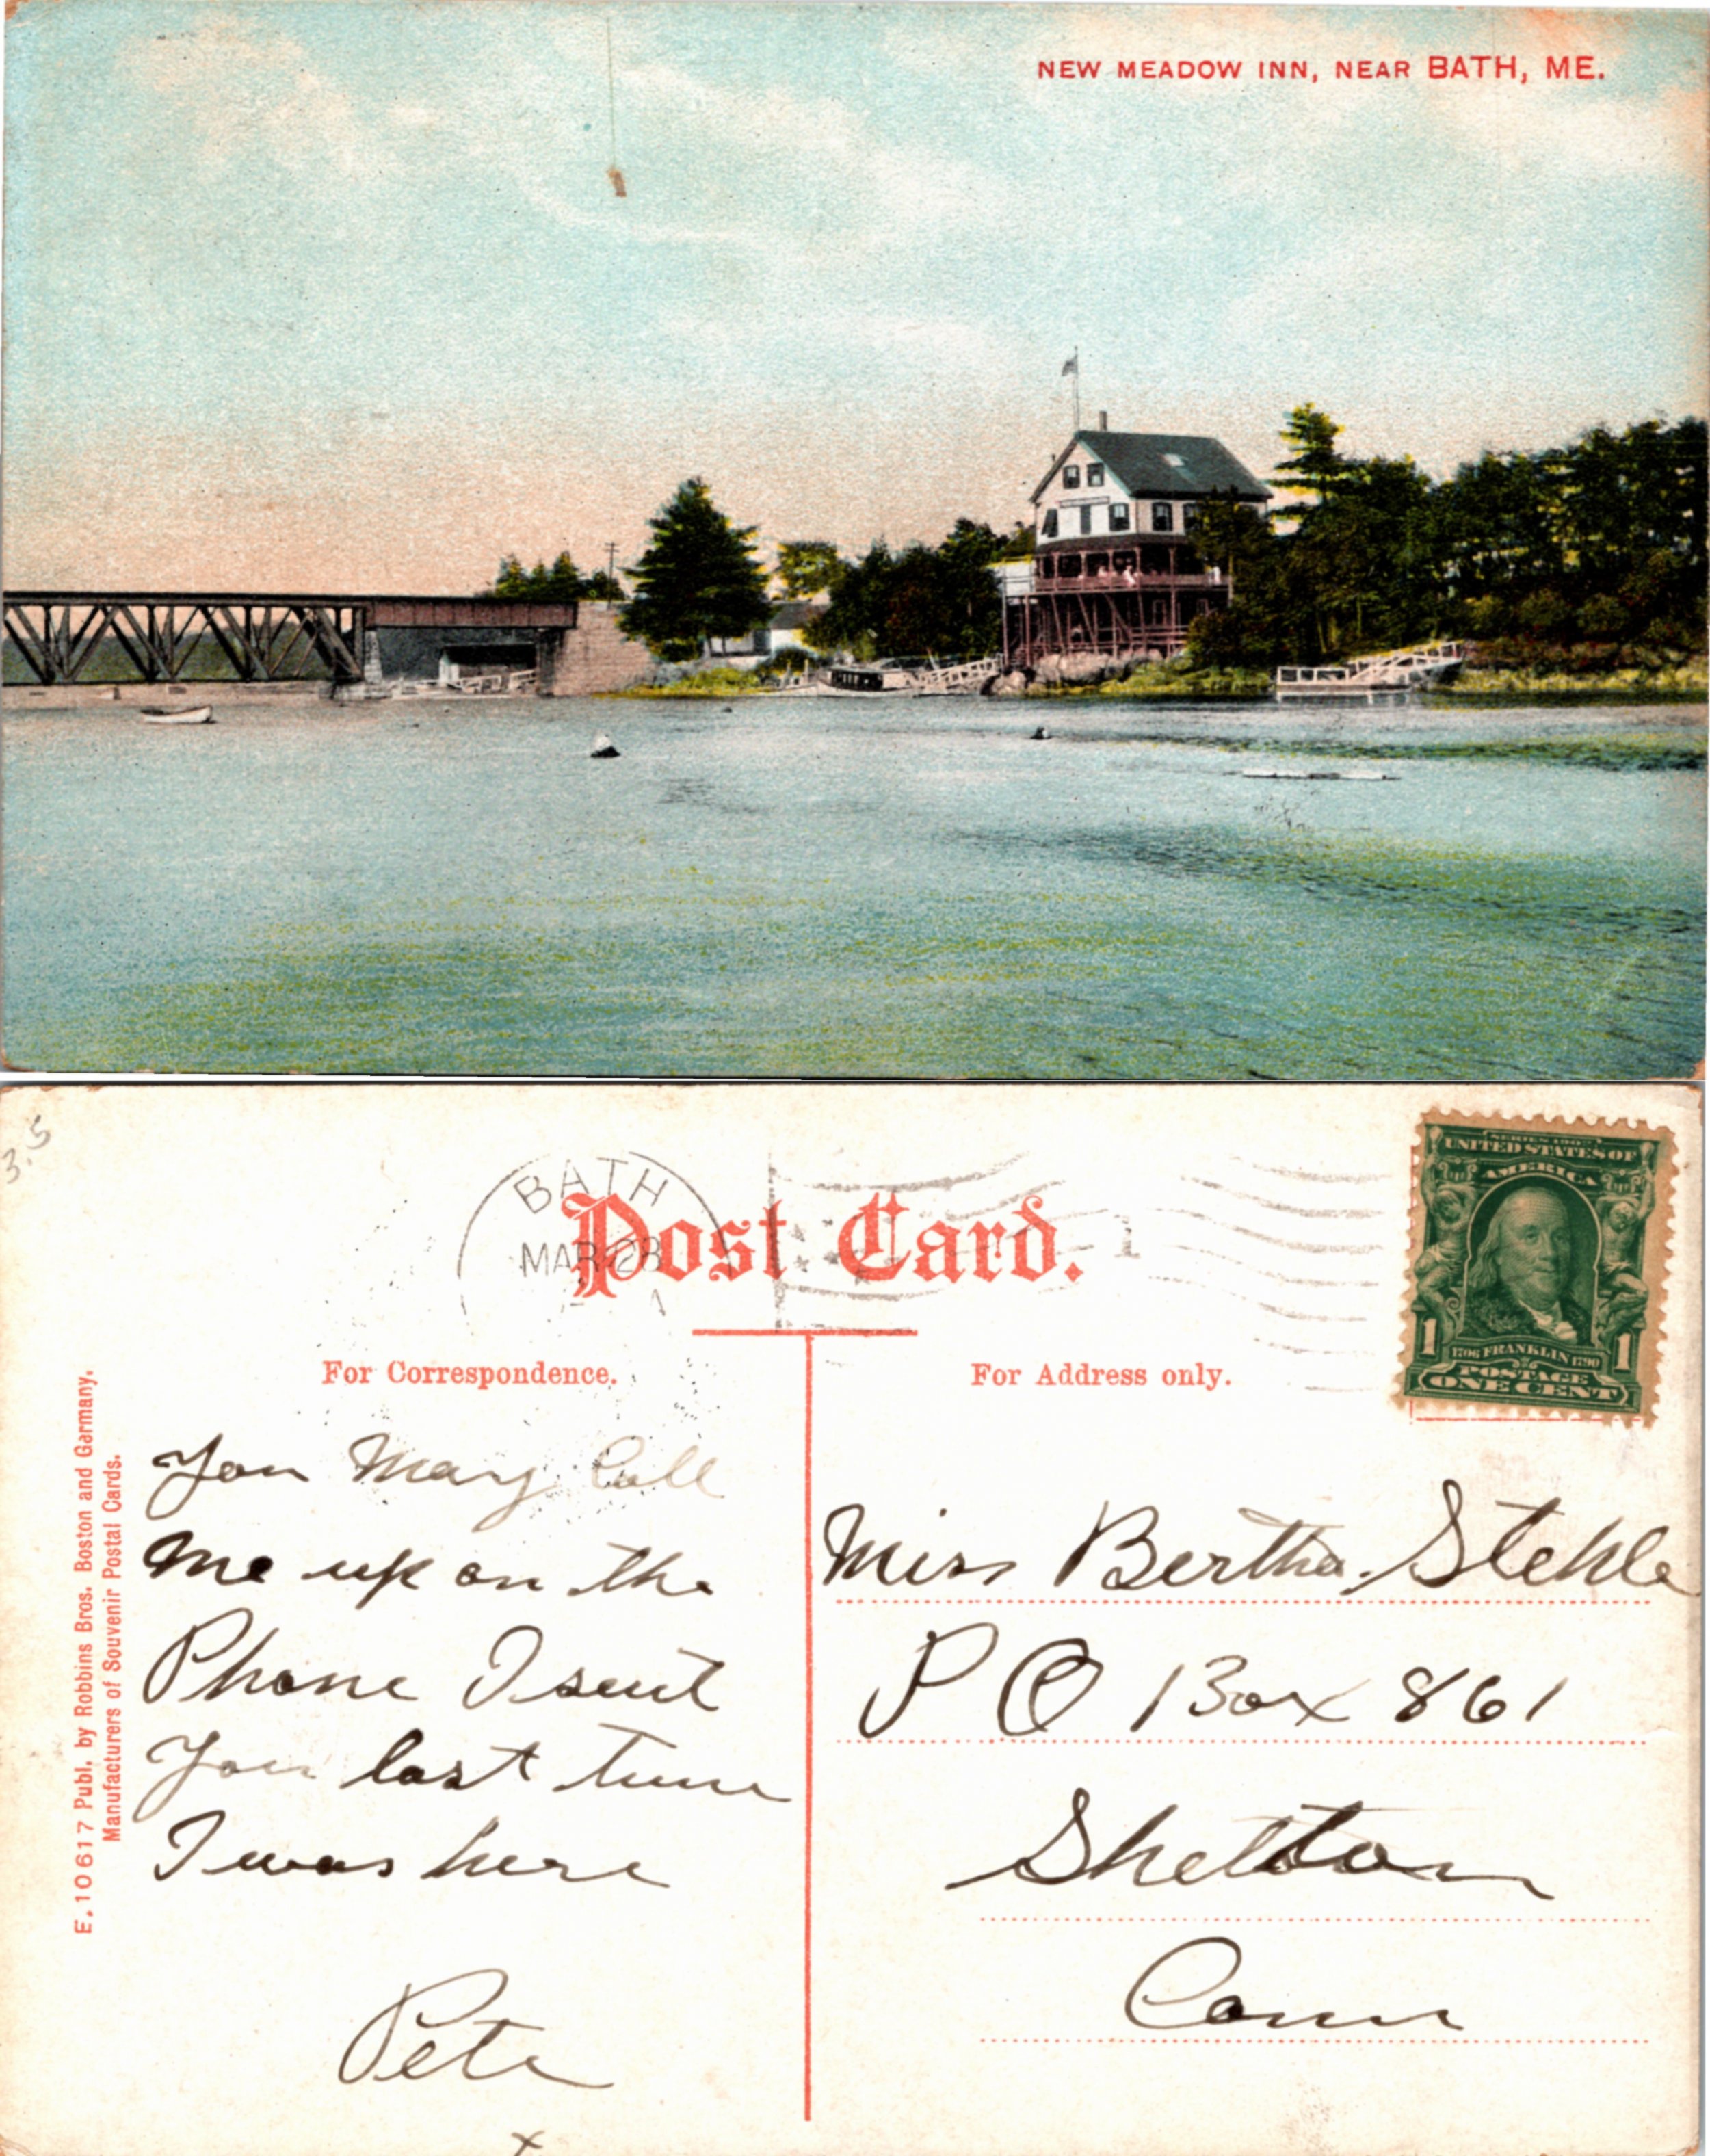 NEW MEADOW INN, NEAR BATH, ME.
3.5
BATH
MAR 28
Post Card.
1
SERIES 1902
UNITED STATES OF
AMERICA
1 1
1706 FRANKLIN 1790
POSTAGE
ONE CENT
For Correspondence.
For Address only.
E. 10617 Publ. by Robbins Bros. Boston and Germany.
Manufacturers of Souvenir Postal Cards.
You May Call
Me up on the
Phone I sent
You last time
I was here
Pete
x
Miss Bertha Stehle
P O Box 861
Shelton
Conn